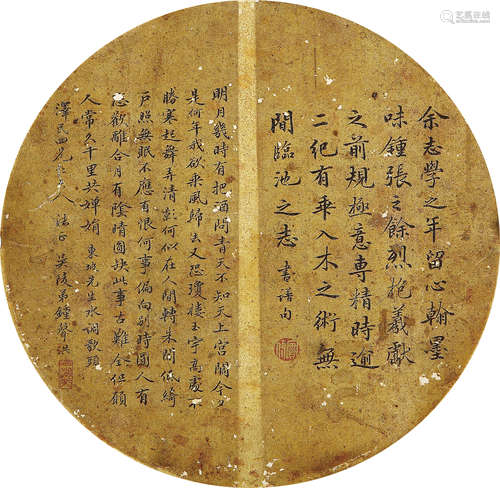 余志學之年留心翰墨
味鍾張之餘烈挹羲獻
之前規極意專精時逾
二紀有乖入木之術無
間臨池之志 書譜句
明月幾時有把酒問青天不知天上宮闕今夕
是何年我欲乘風歸去又恐瓊樓玉宇高處不
勝寒起舞弄清影何似在人間轉朱閣低綺
戶照無眠不應有恨何事偏向別時圓人有
悲歡離合月有陰晴圓缺此事古難全但願
人常久千里共嬋娟 東坡先生水調歌頭
澤民四兄大人 法正 吳陵弟鐘聲洪